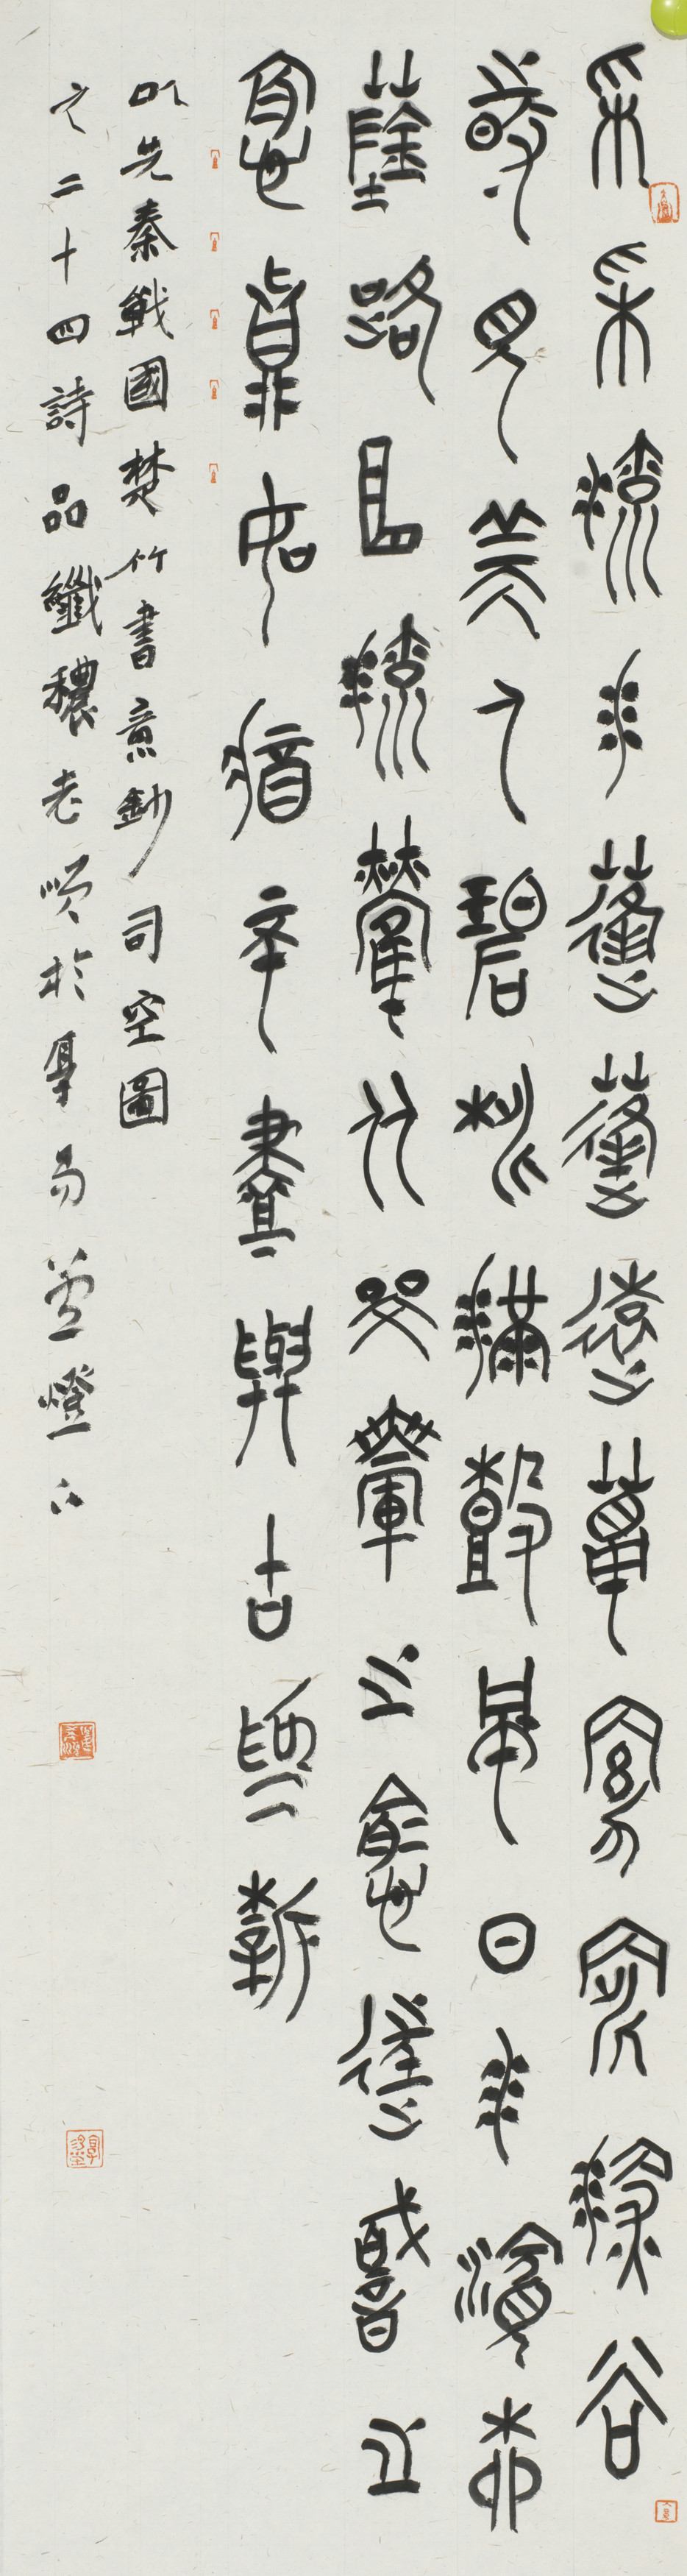 采采流水蓬蓬遠春窈窕深谷
時見美人碧桃滿樹風日水濱柳
陰路曲流鶯比鄰乘之愈往識之
愈真如將不盡與古為新
以先秦戰國楚竹書意鈔司空圖
之二十四詩品纖穠老於燈下